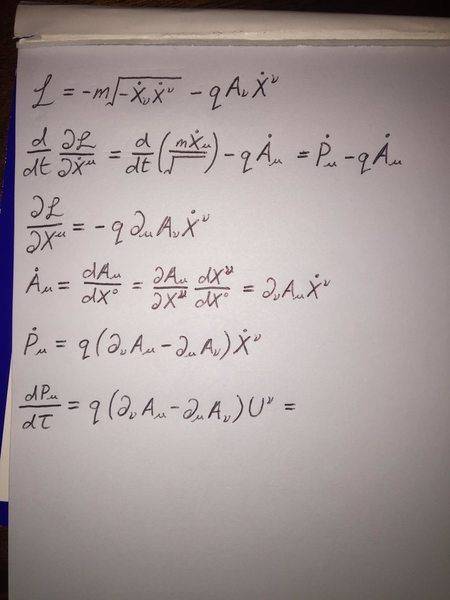 ℒ = -m√(-Ẋ_ν Ẋ^ν) - q A_ν Ẋ^ν
d/dt ∂ℒ/∂Ẋ^μ = d/dt (mẊ_μ/√) - q Ȧ_μ = Ṗ_μ - q Ȧ_μ
∂ℒ/∂X^μ = - q ∂_μ A_ν Ẋ^ν
Ȧ_μ = dA_μ/dX° = ∂A_μ/∂X^ν dX^ν/dX° = ∂_ν A_μ Ẋ^ν
Ṗ_μ = q (∂_ν A_μ - ∂_μ A_ν) Ẋ^ν
dP_μ/dτ = q (∂_ν A_μ - ∂_μ A_ν) U^ν =